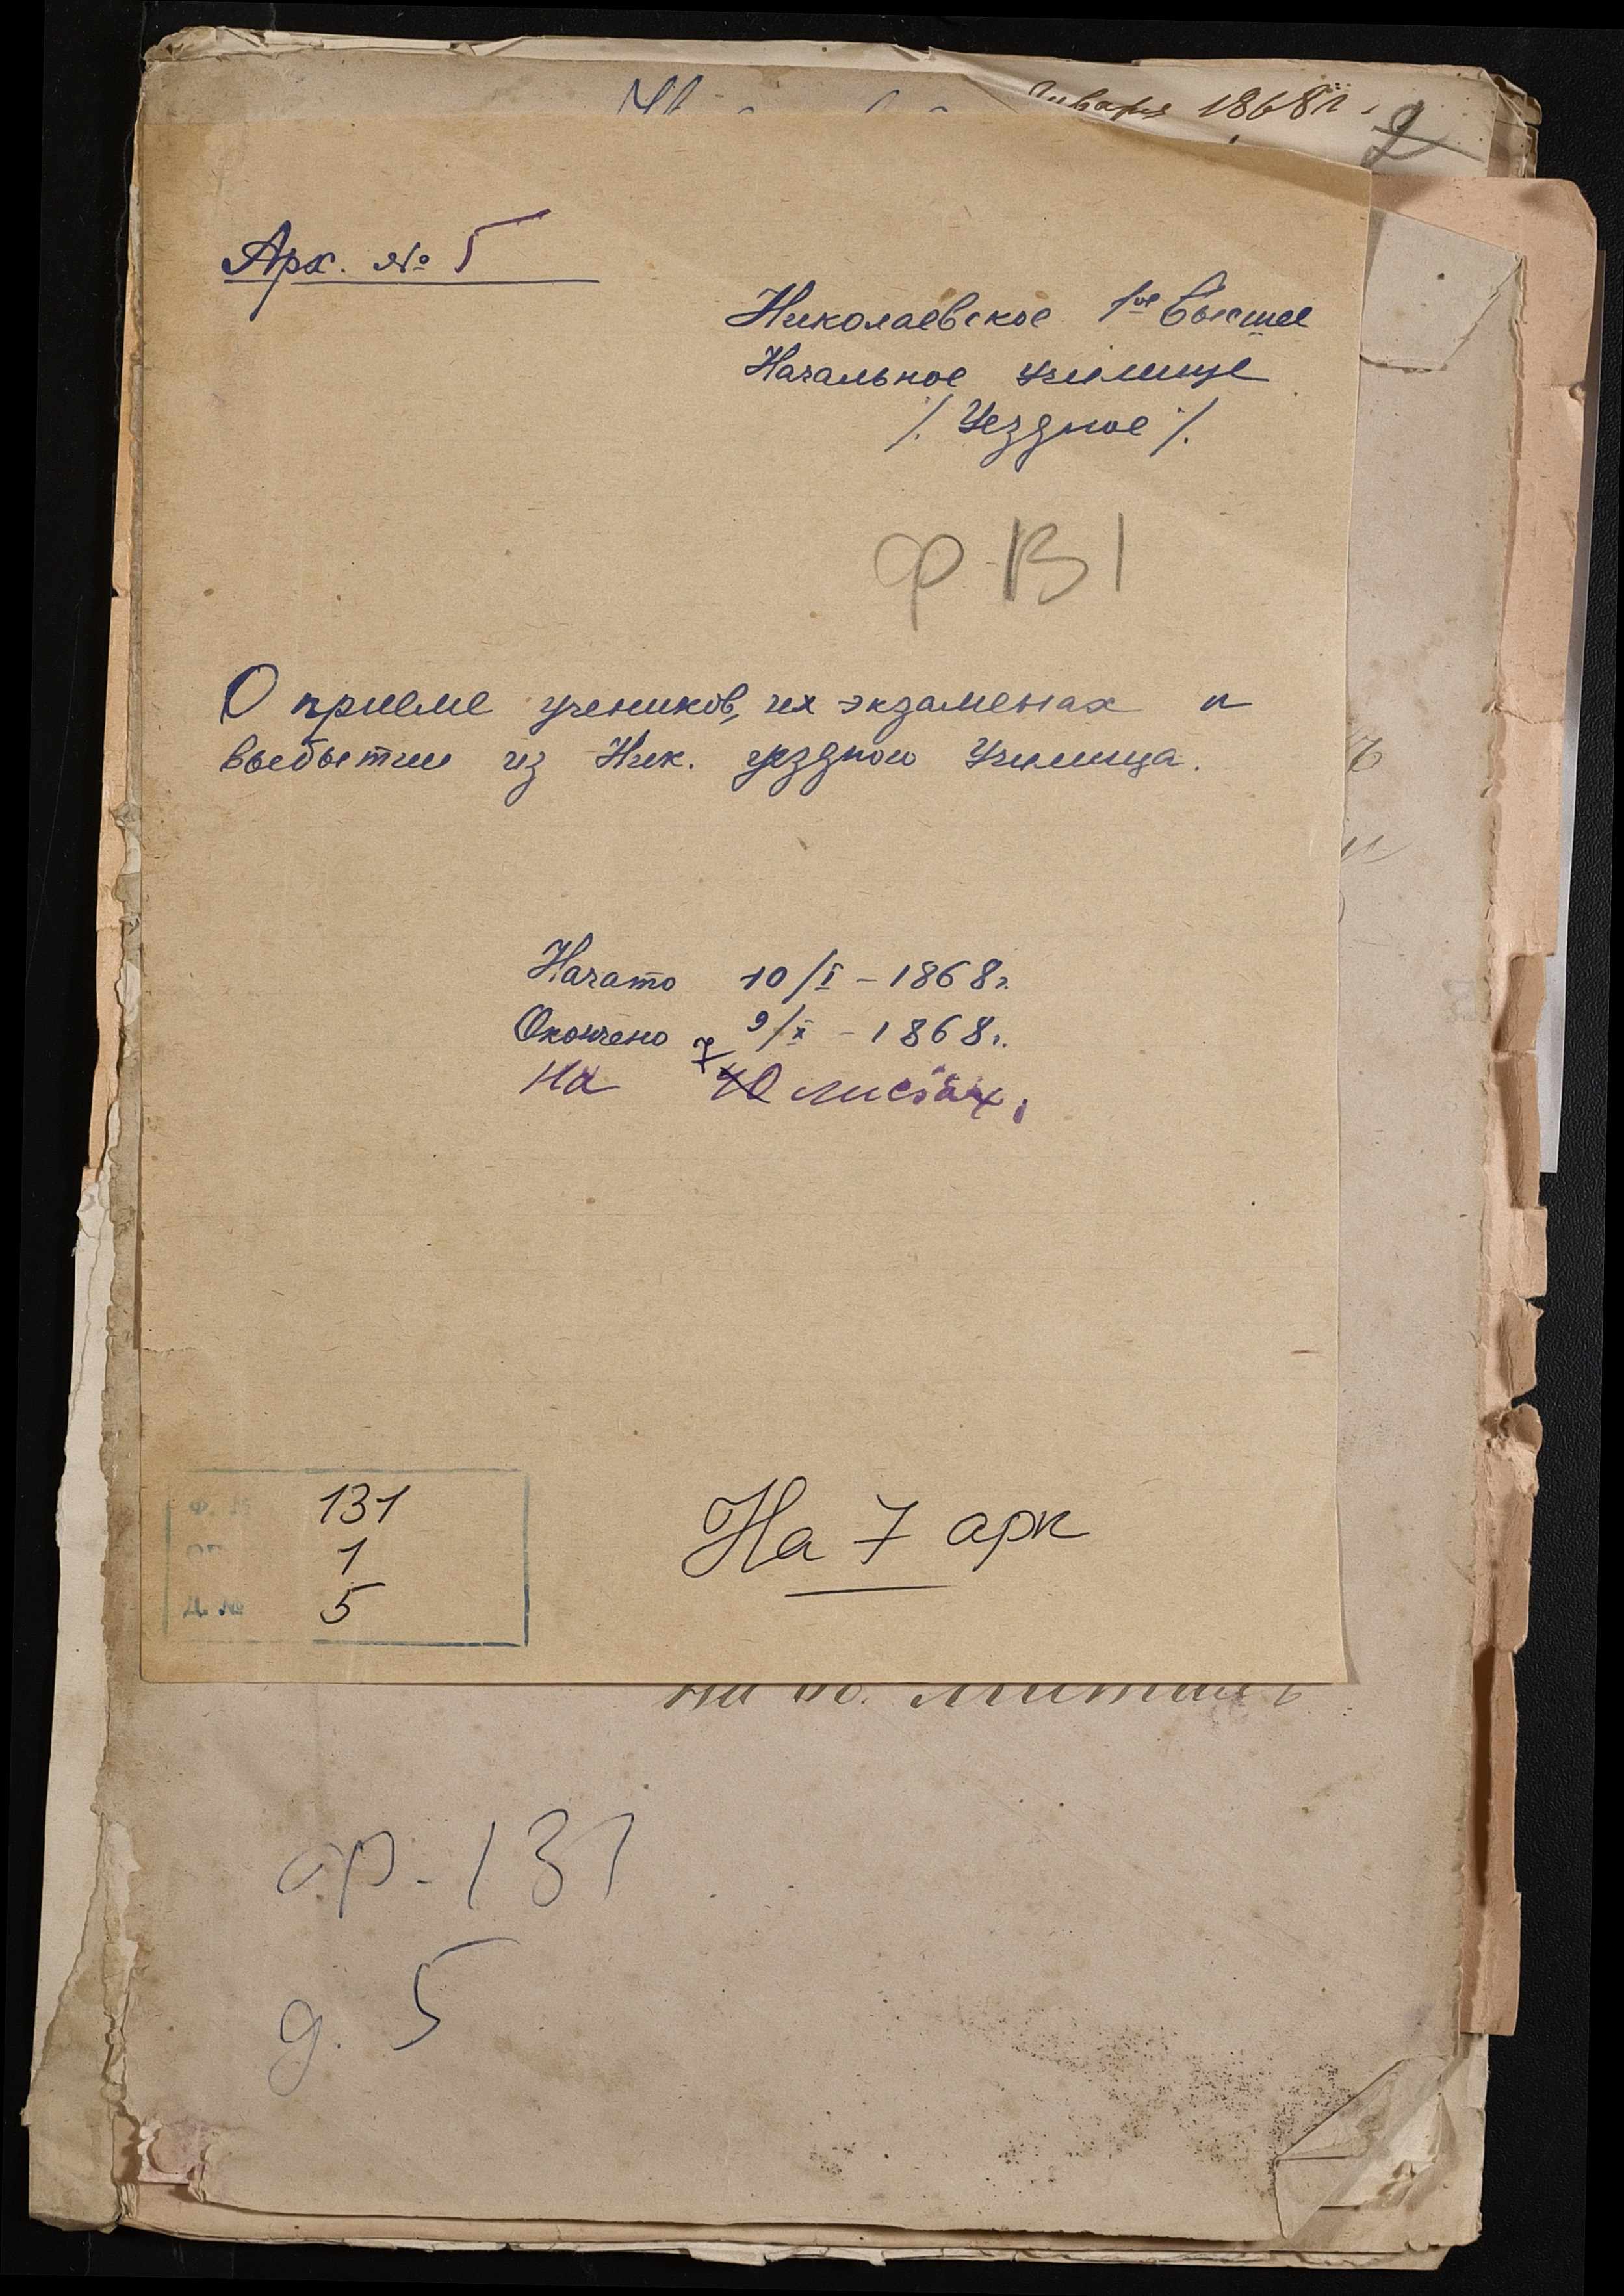 Января 1868 г.
2
Арх. № 5
Николаевское 1ое Высшее
Начальное училище
/. Уездное /.
ф 131
О приеме учеников, их экзаменах и
выбытии из Ник. уездного Училища.
Начато 10/I - 1868 г.
Окончено 9/X - 1868 г.
7
На 10 листах.
131
1
Д. № 5
На 7 арк
ф. 131
д. 5